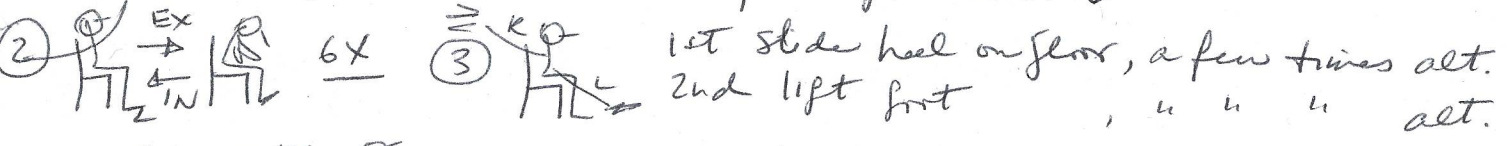 ② EX IN 6X ③ R L 1st slide heel on floor, a few times alt.
2nd lift foot , " " " alt.